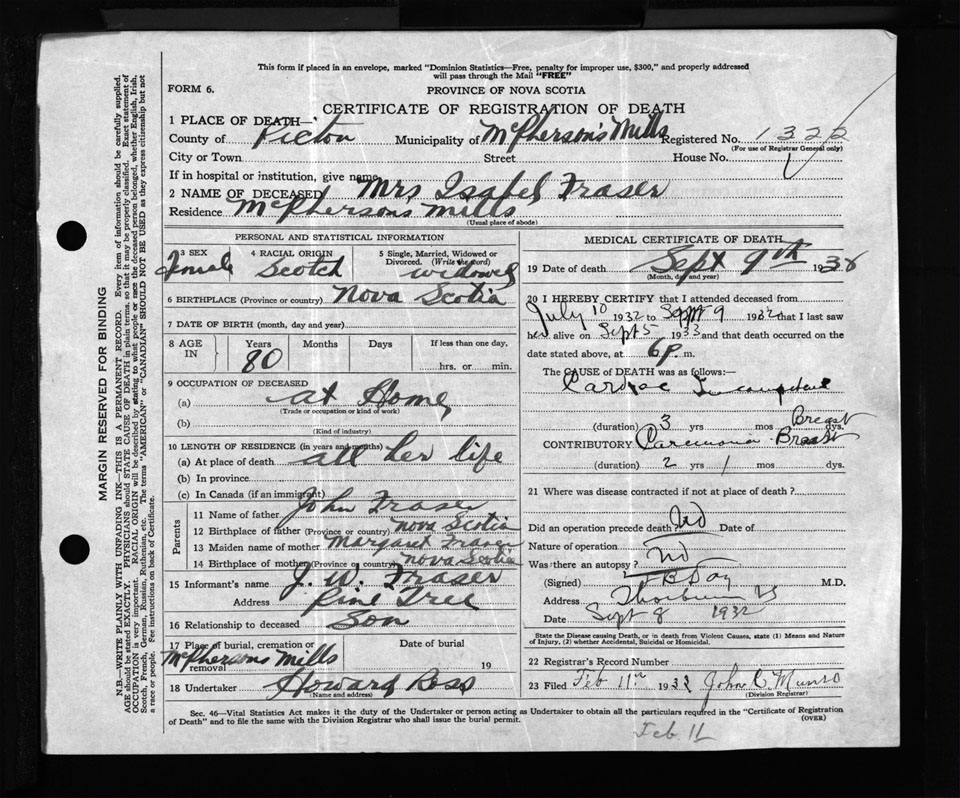 This form if placed in an envelope, marked "Dominion Statistics—Free, penalty for improper use, $300," and properly addressed
will pass through the Mail "FREE"
FORM 6.
PROVINCE OF NOVA SCOTIA
CERTIFICATE OF REGISTRATION OF DEATH
1 PLACE OF DEATH—
County of Pictou Municipality of McPherson's Mills Registered No. 1322
(For use of Registrar General only)
City or Town Street House No.
If in hospital or institution, give name
2 NAME OF DECEASED Mrs Isabel Fraser
Residence McPhersons Mills
(Usual place of abode)
PERSONAL AND STATISTICAL INFORMATION
3 SEX 4 RACIAL ORIGIN 5 Single, Married, Widowed or
Divorced. (Write the word)
Female Scotch widowed
6 BIRTHPLACE (Province or country) Nova Scotia
7 DATE OF BIRTH (month, day and year)
8 AGE IN Years Months Days If less than one day,
80 hrs. or min.
9 OCCUPATION OF DECEASED
(a) at Home
(Trade or occupation or kind of work)
(b)
(Kind of industry)
10 LENGTH OF RESIDENCE (in years and months)
(a) At place of death all her life
(b) In province
(c) In Canada (if an immigrant)
Parents
11 Name of father John Fraser
12 Birthplace of father (Province or country) Nova Scotia
13 Maiden name of mother Margaret Fraser
14 Birthplace of mother (Province or country) Nova Scotia
15 Informant's name J. W. Fraser
Address Pine Tree
16 Relationship to deceased Son
17 Place of burial, cremation or removal Date of burial
McPhersons Mills 19
18 Undertaker Howard Ross
(Name and address)
MEDICAL CERTIFICATE OF DEATH
19 Date of death Sept 9th 193
(Month, day and year)
20 I HEREBY CERTIFY that I attended deceased from
July 10 1932 to Sept 9 1932 that I last saw
her alive on Sept 5 1933 and that death occurred on
the date stated above, at 6 P. m.
The CAUSE OF DEATH was as follows:—
Cardiac
(duration) 3 yrs mos dys.
Breast
CONTRIBUTORY Carcinoma Breast
(duration) 2 yrs 1 mos dys.
21 Where was disease contracted if not at place of death?
Did an operation precede death? No Date of
Nature of operation
Was there an autopsy? No
(Signed) Day M.D.
Address Thorburn NS
Date Sept 8 1932
State the Disease causing Death, or in death from Violent Causes, state (1) Means and Nature
of Injury, (2) whether Accidental, Suicidal or Homicidal.
22 Registrar's Record Number
23 Filed Feb 11th 193 John C Munro
(Division Registrar)
Sec. 46—Vital Statistics Act makes it the duty of the Undertaker or person acting as Undertaker to obtain all the particulars required in the "Certificate of Registration
of Death" and to file the same with the Division Registrar who shall issue the burial permit. (OVER)
Feb. 11
MARGIN RESERVED FOR BINDING
N.B.—WRITE PLAINLY WITH UNFADING INK—THIS IS A PERMANENT RECORD. Every item of information should be carefully supplied.
AGE should be stated EXACTLY. PHYSICIANS should STATE CAUSE OF DEATH in plain terms, so that it may be properly classified. Exact statement of
OCCUPATION is very important. RACIAL ORIGIN will be described by stating to what people or race the deceased person belonged, whether English, Irish,
Scotch, French, German, Russian, Ruthenian, etc. The terms "AMERICAN" or "CANADIAN" SHOULD NOT BE USED as they express citizenship but not
a race or people. See instructions on back of Certificate.